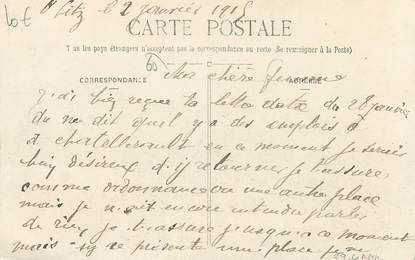 le 2 janvier 1915
60€
CARTE POSTALE
Tous les pays étrangers n'acceptent pas la correspondance au recto (Se renseigner à la Poste)
CORRESPONDANCE
Ma chère femme
j'ai bien reçue ta lettre datée du 28 janvier
tu me dit qu'il y a des emplois
a chatellerault en ce moment je serais
bien désireux d'y retourner je t'assure
comme ordonnance ou une autre place
mais je n'ait encore entendu parler
de rien je t'assure jusqu'a ce moment
mais s'il se présente une place je